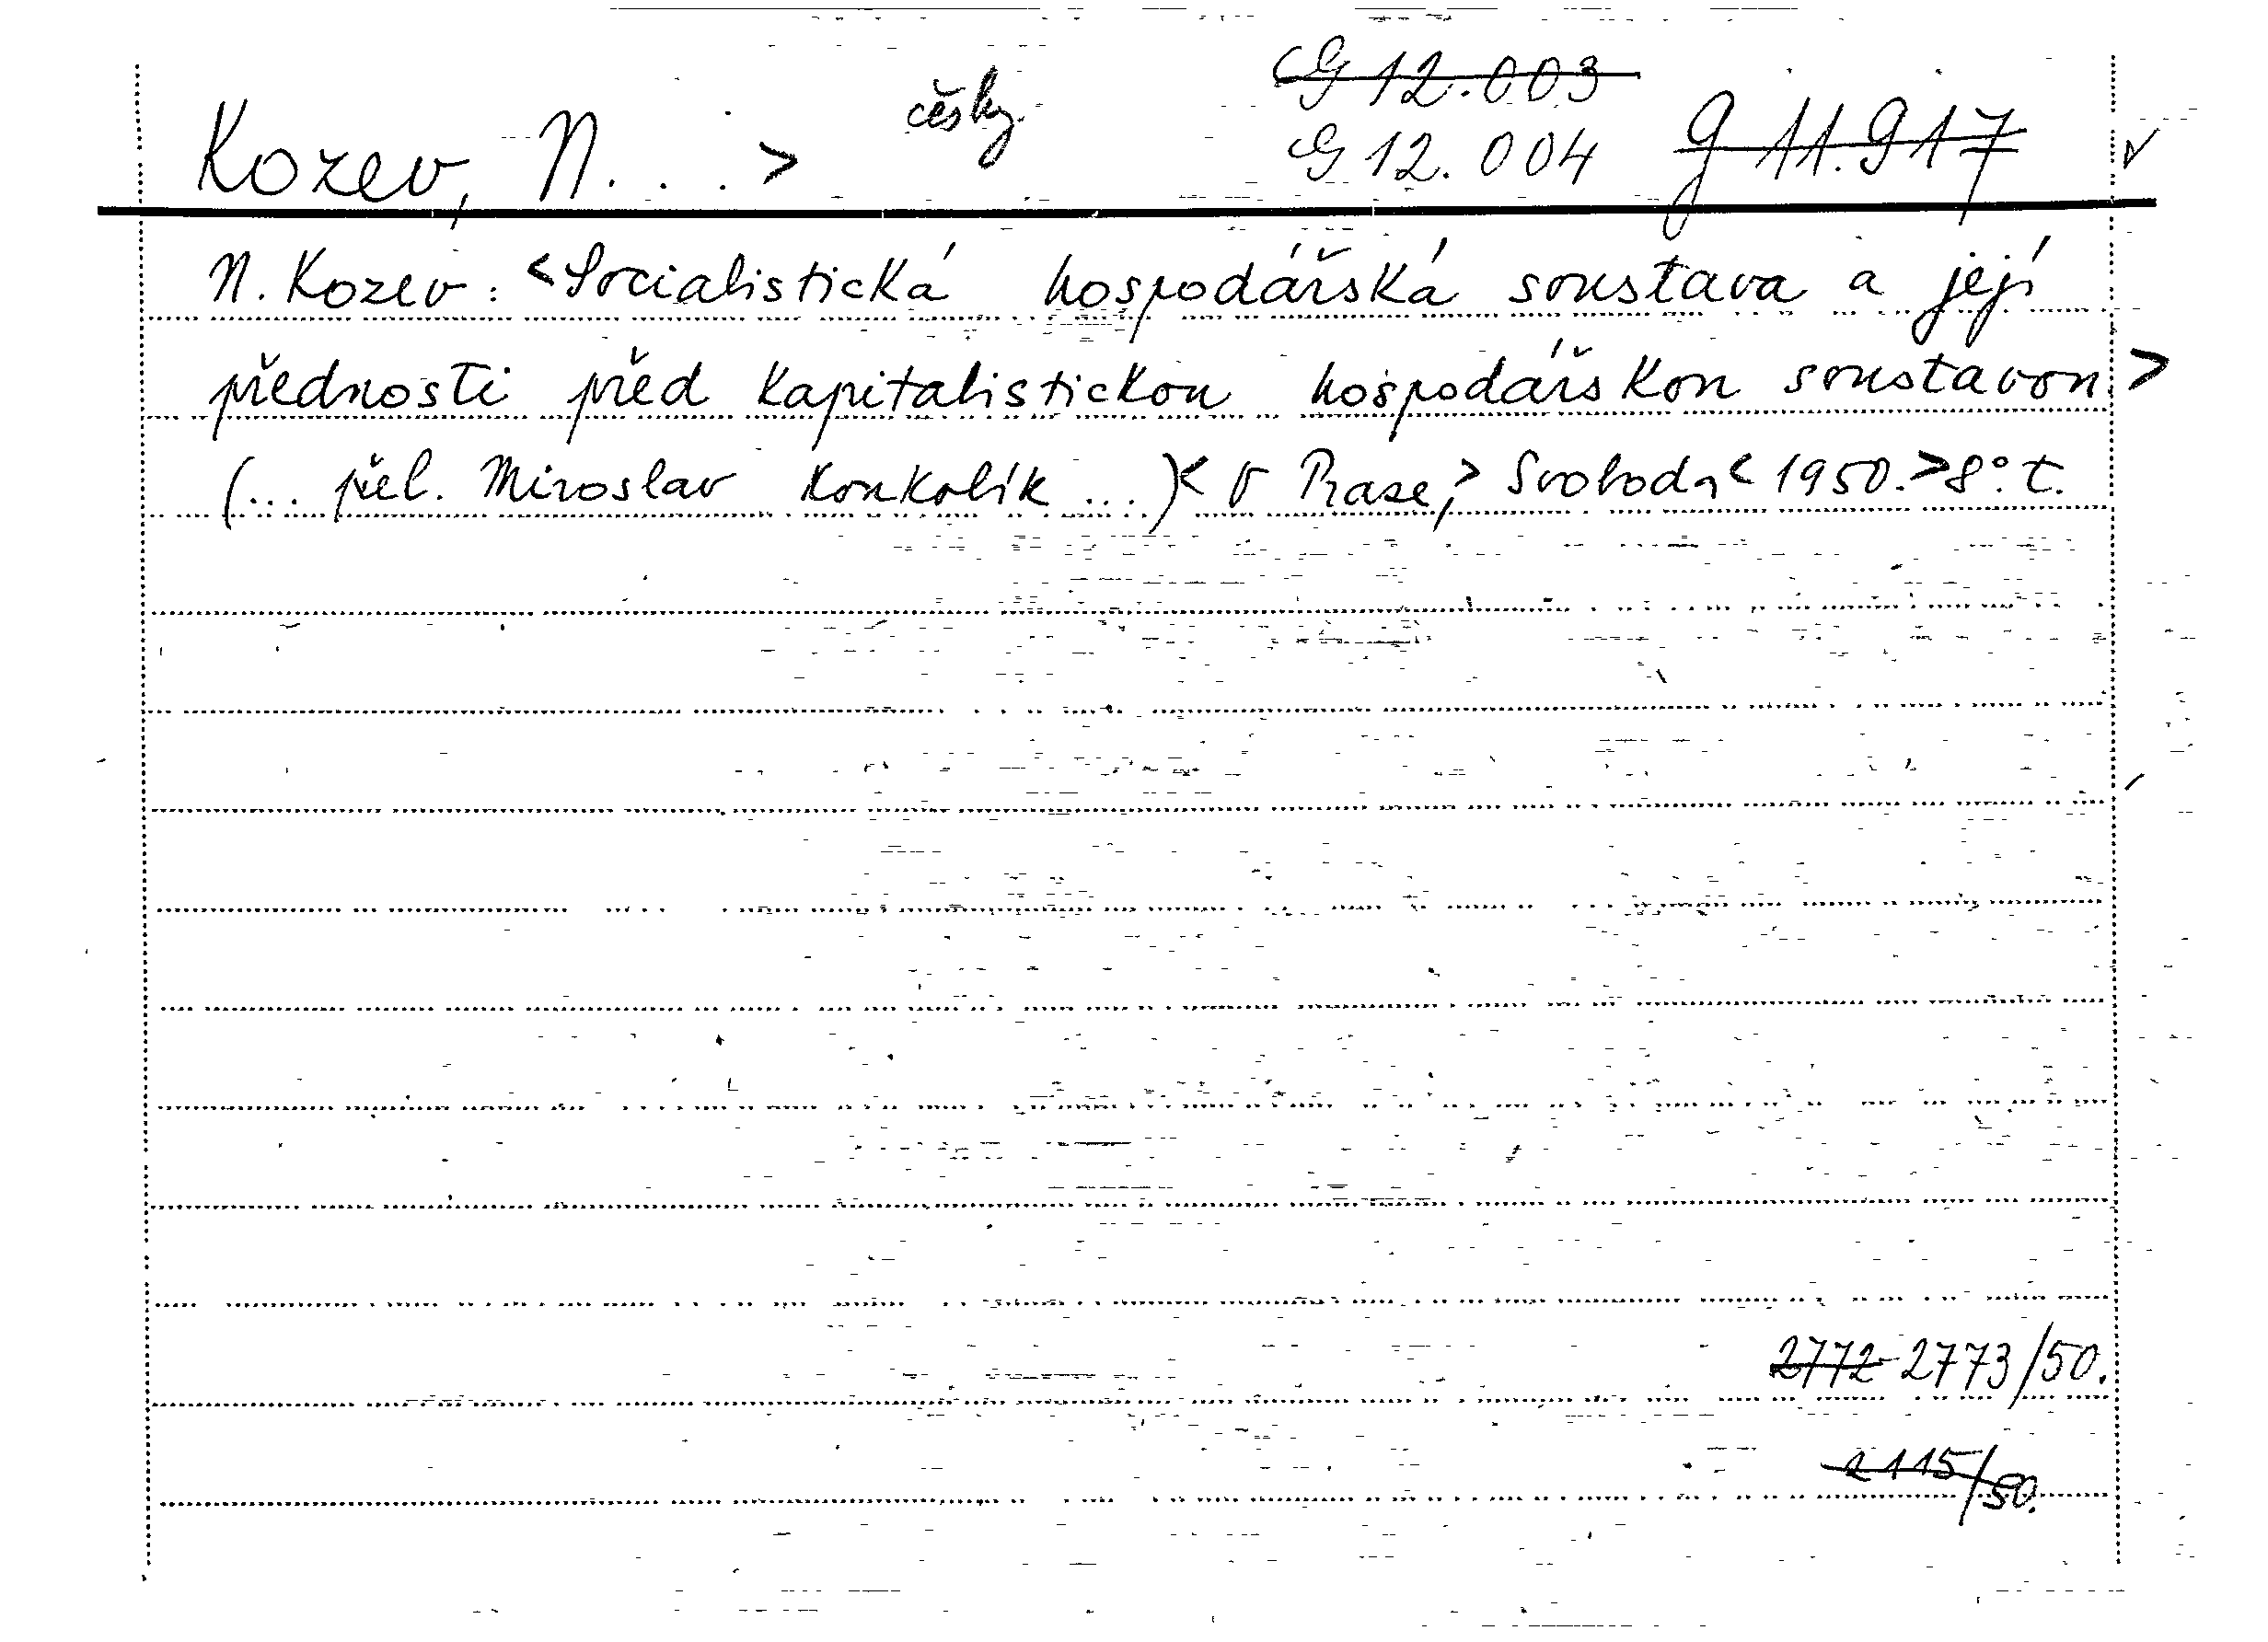 G 12.003
česky.
Kozev, N. . . >
G 12.004
G 11.917
N. Kozev: <Socialistická hospodářská soustava a její
přednosti před kapitalistickou hospodářskou soustavou.>
(... přel. Miroslav Konkolík ...)< V Praze,> Svoboda< 1950.>8°. t.
2772-2773/50.
2115/50.